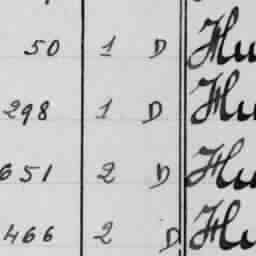 50 1 D Hu
298 1 D Hu
651 2 D Hu
466 2 D Hu